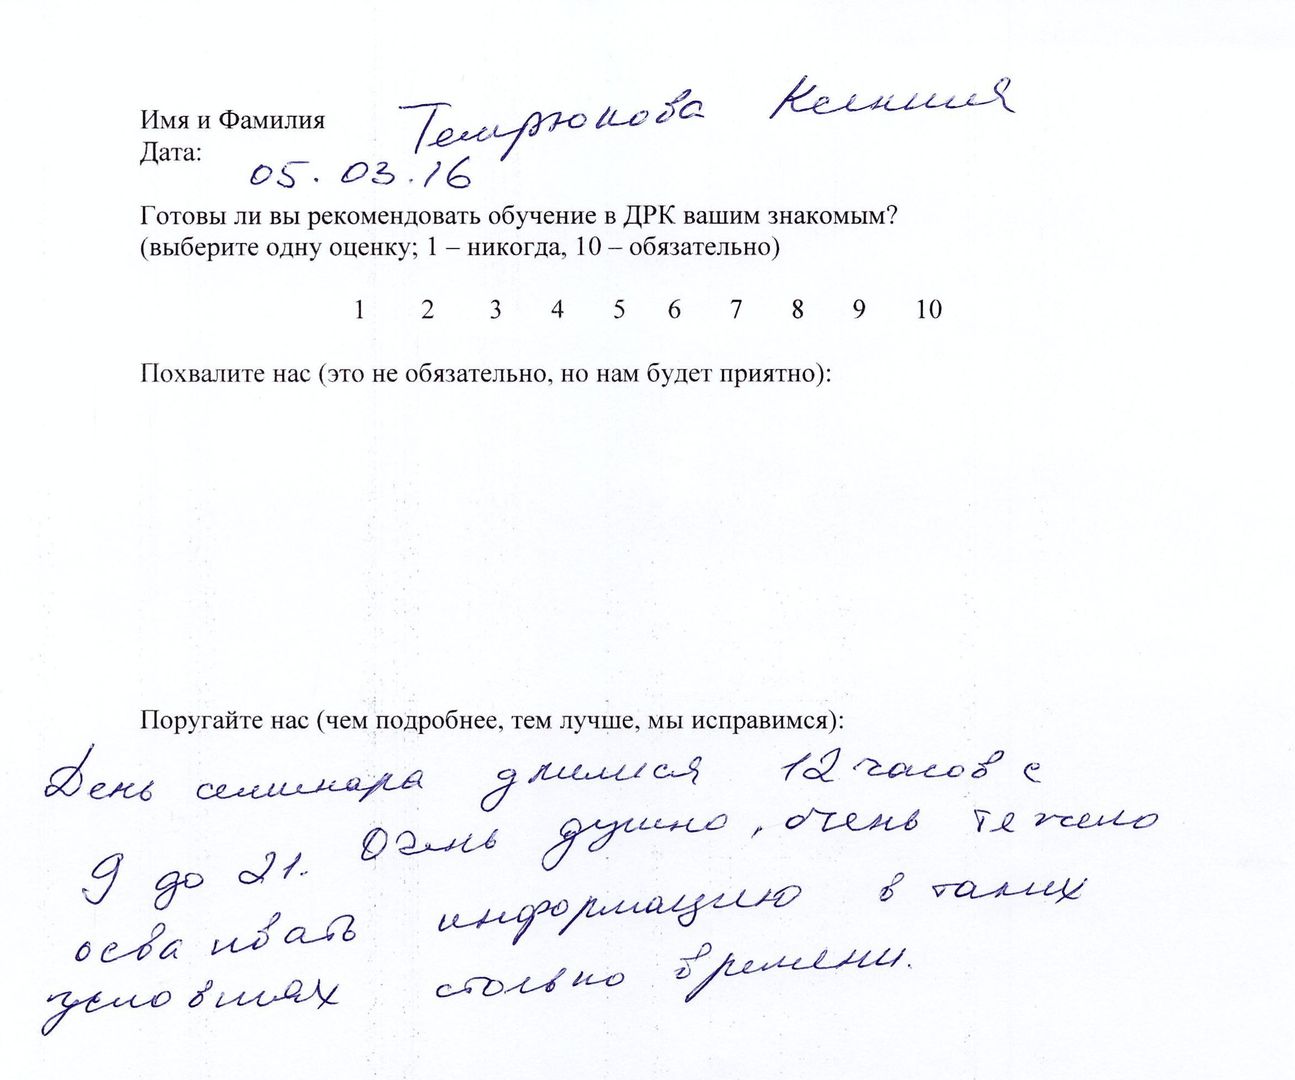 Имя и Фамилия Темрюкова Ксения
Дата:
05.03.16
Готовы ли вы рекомендовать обучение в ДРК вашим знакомым?
(выберите одну оценку; 1 – никогда, 10 – обязательно)
1 2 3 4 5 6 7 8 9 10
Похвалите нас (это не обязательно, но нам будет приятно):
Поругайте нас (чем подробнее, тем лучше, мы исправимся):
День семинара длился 12 часов с
9 до 21. Очень душно, очень тяжело
осваивать информацию в таких
условиях столько времени.